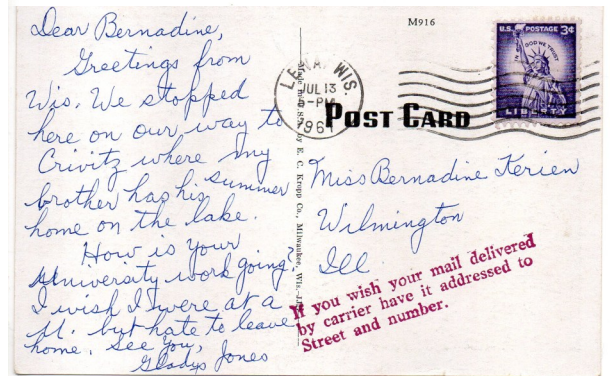 Dear Bernadine,
Greetings from
Wis. We stopped
here on our way to
Crivitz where my
brother has his summer
home on the lake.
How is your
University work going?
I wish I were at a
U. but hate to leave
home. See you,
Gladys Jones
Made in U.S.A. by E. C. Kropp Co., Milwaukee, Wis.
M916
WIS.
JUL 13
5-PM
1961
U.S. POSTAGE 3¢
IN GOD WE TRUST
LIBERTY
POST CARD
Miss Bernadine Kerien
Wilmington
Ill.
If you wish your mail delivered
by carrier have it addressed to
Street and number.